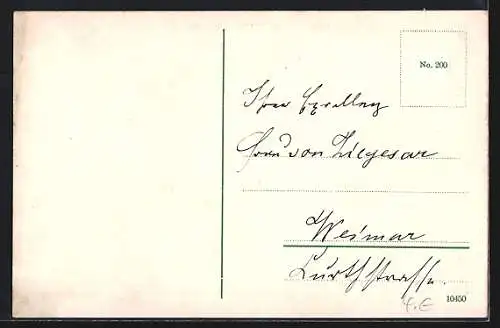 No. 200
Ihrer Exzellenz
Frau von Ziegesar
Weimar
Lurthstrasse.
4.E
10450